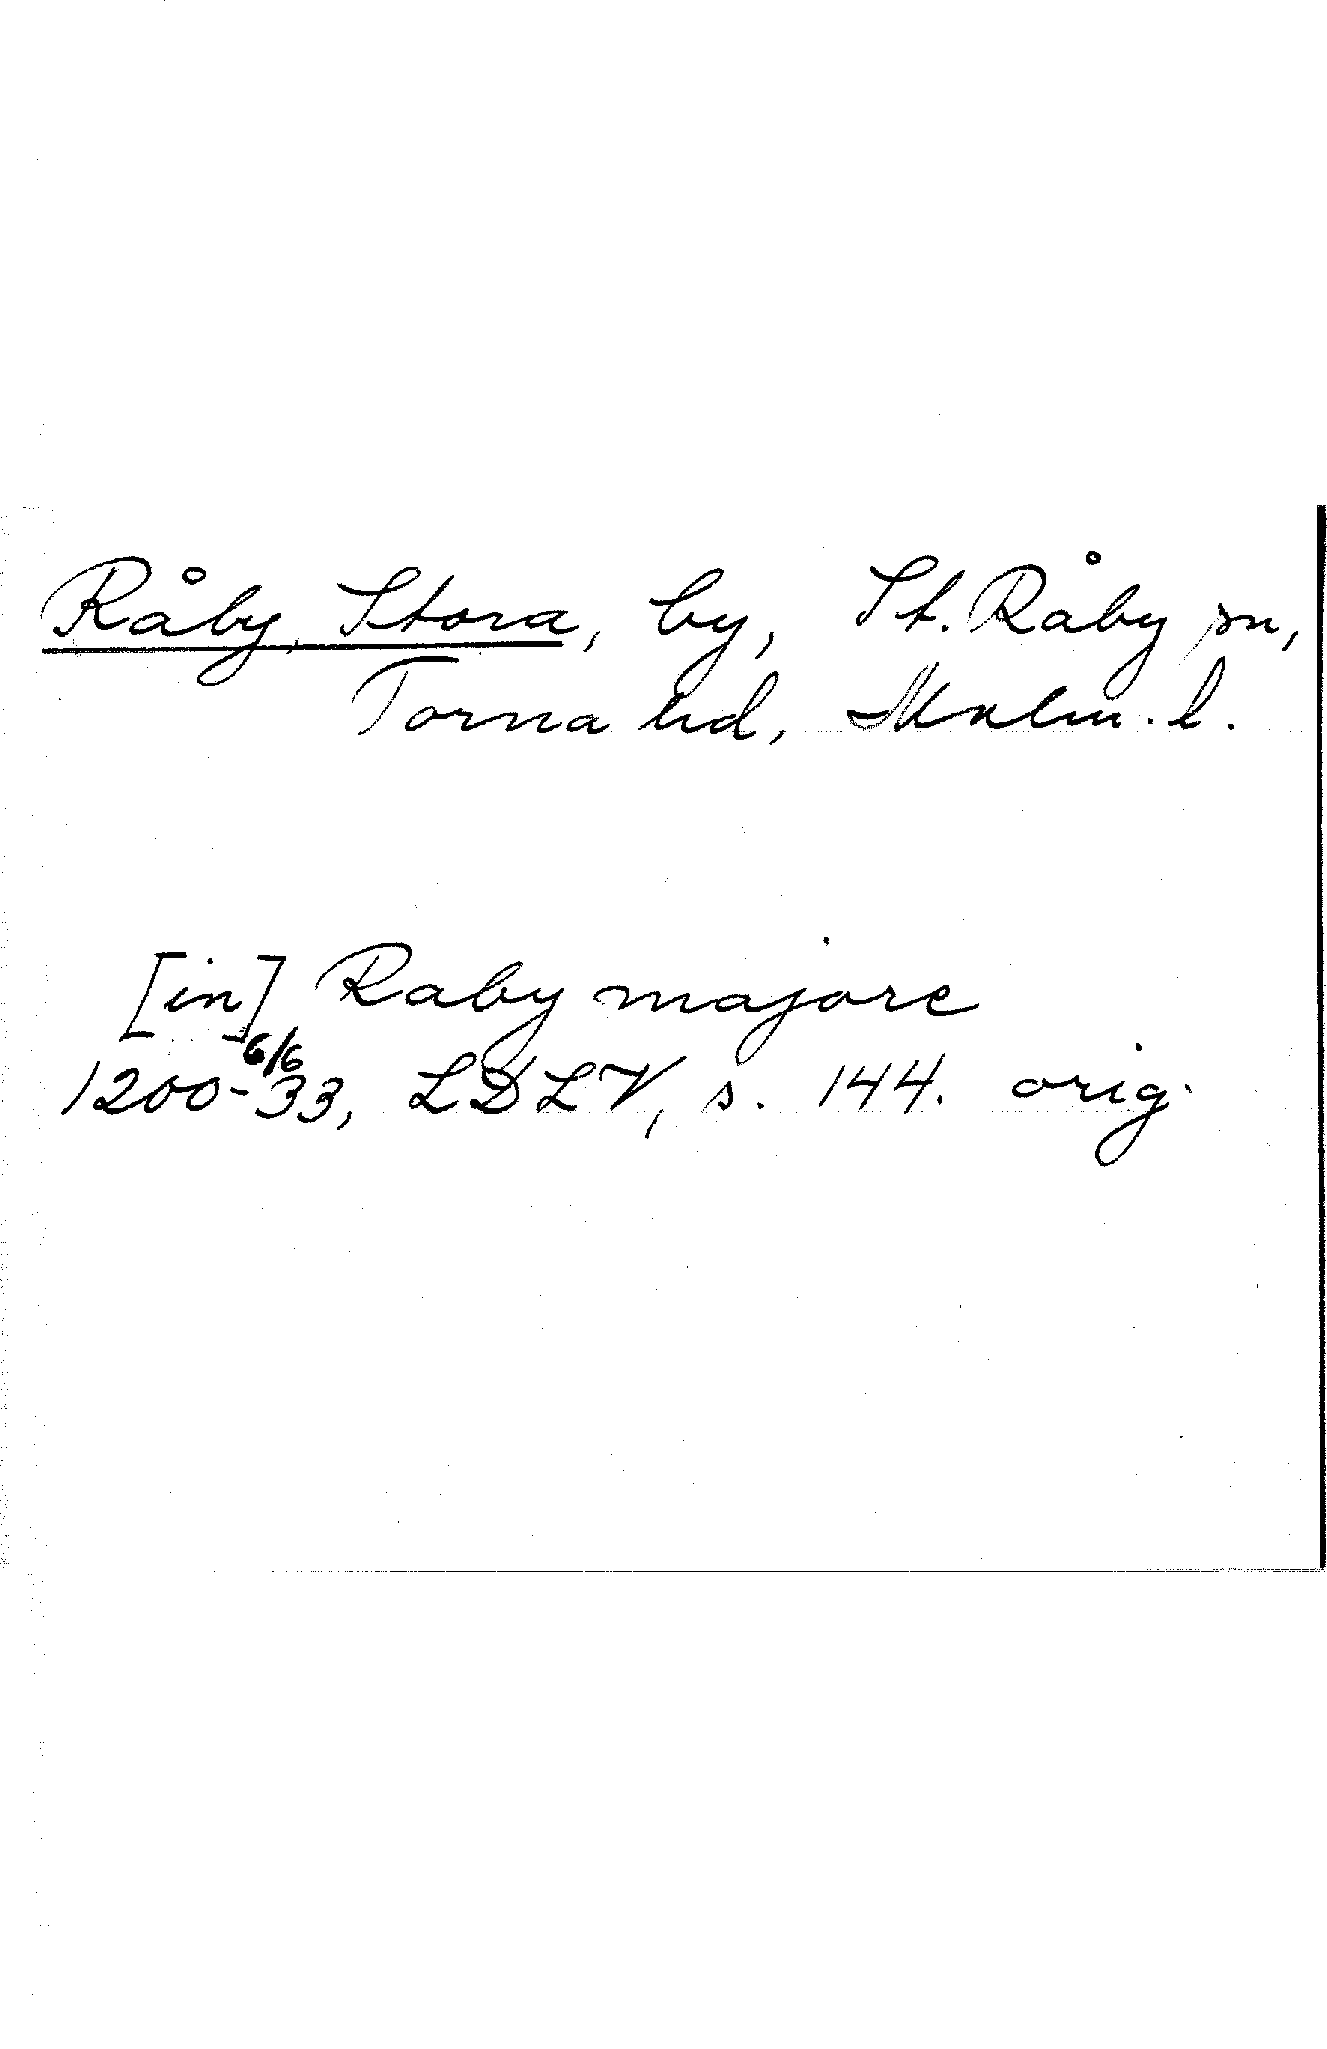 Råby, Stora, by, St. Råby sn,
Torna hd, Malm. l.
[in] Raby majore
6/6
1200-33, LDLV, s. 144. orig.